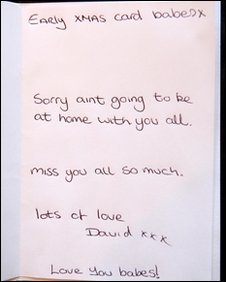 Early XMAS card babes x
Sorry aint going to be
at home with you all.
miss you all so much.
lots of love
David xxx
Love You babes!